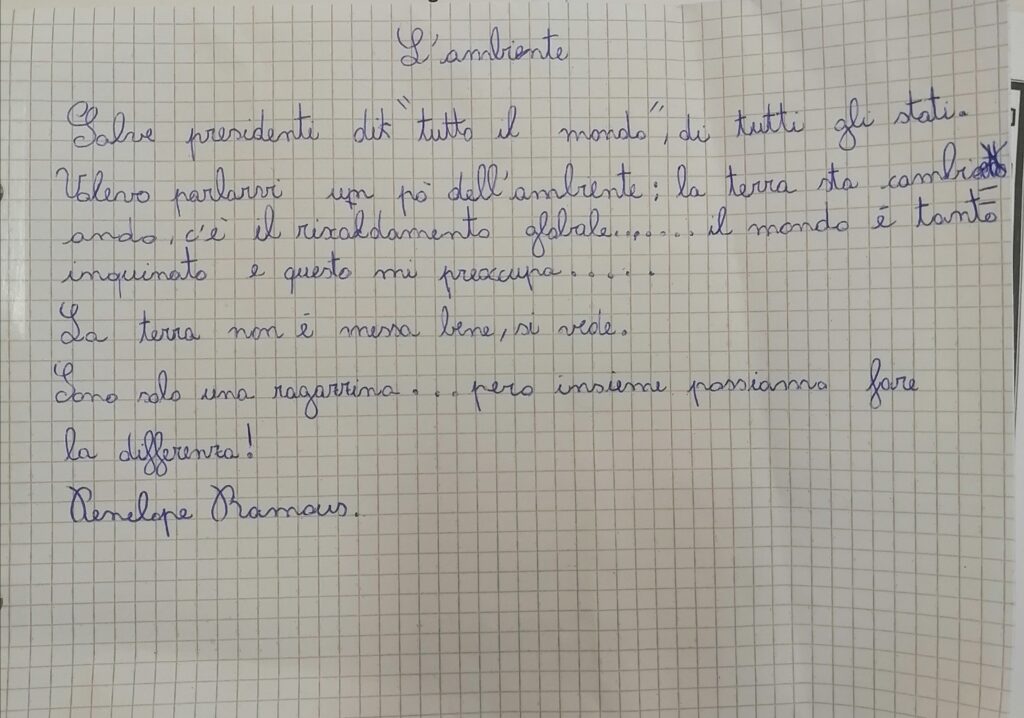 L'ambiente
Salve presidenti di "tutto il mondo", di tutti gli stati.
Volevo parlarvi un pò dell'ambiente; la terra sta cambi
ando, c'è il riscaldamento globale....... il mondo è tanto
inquinato e questo mi preoccupa.....
La terra non è messa bene, si vede.
Sono solo una ragazzina... pero insieme possiamo fare
la differenza!
Penelope Ramous.